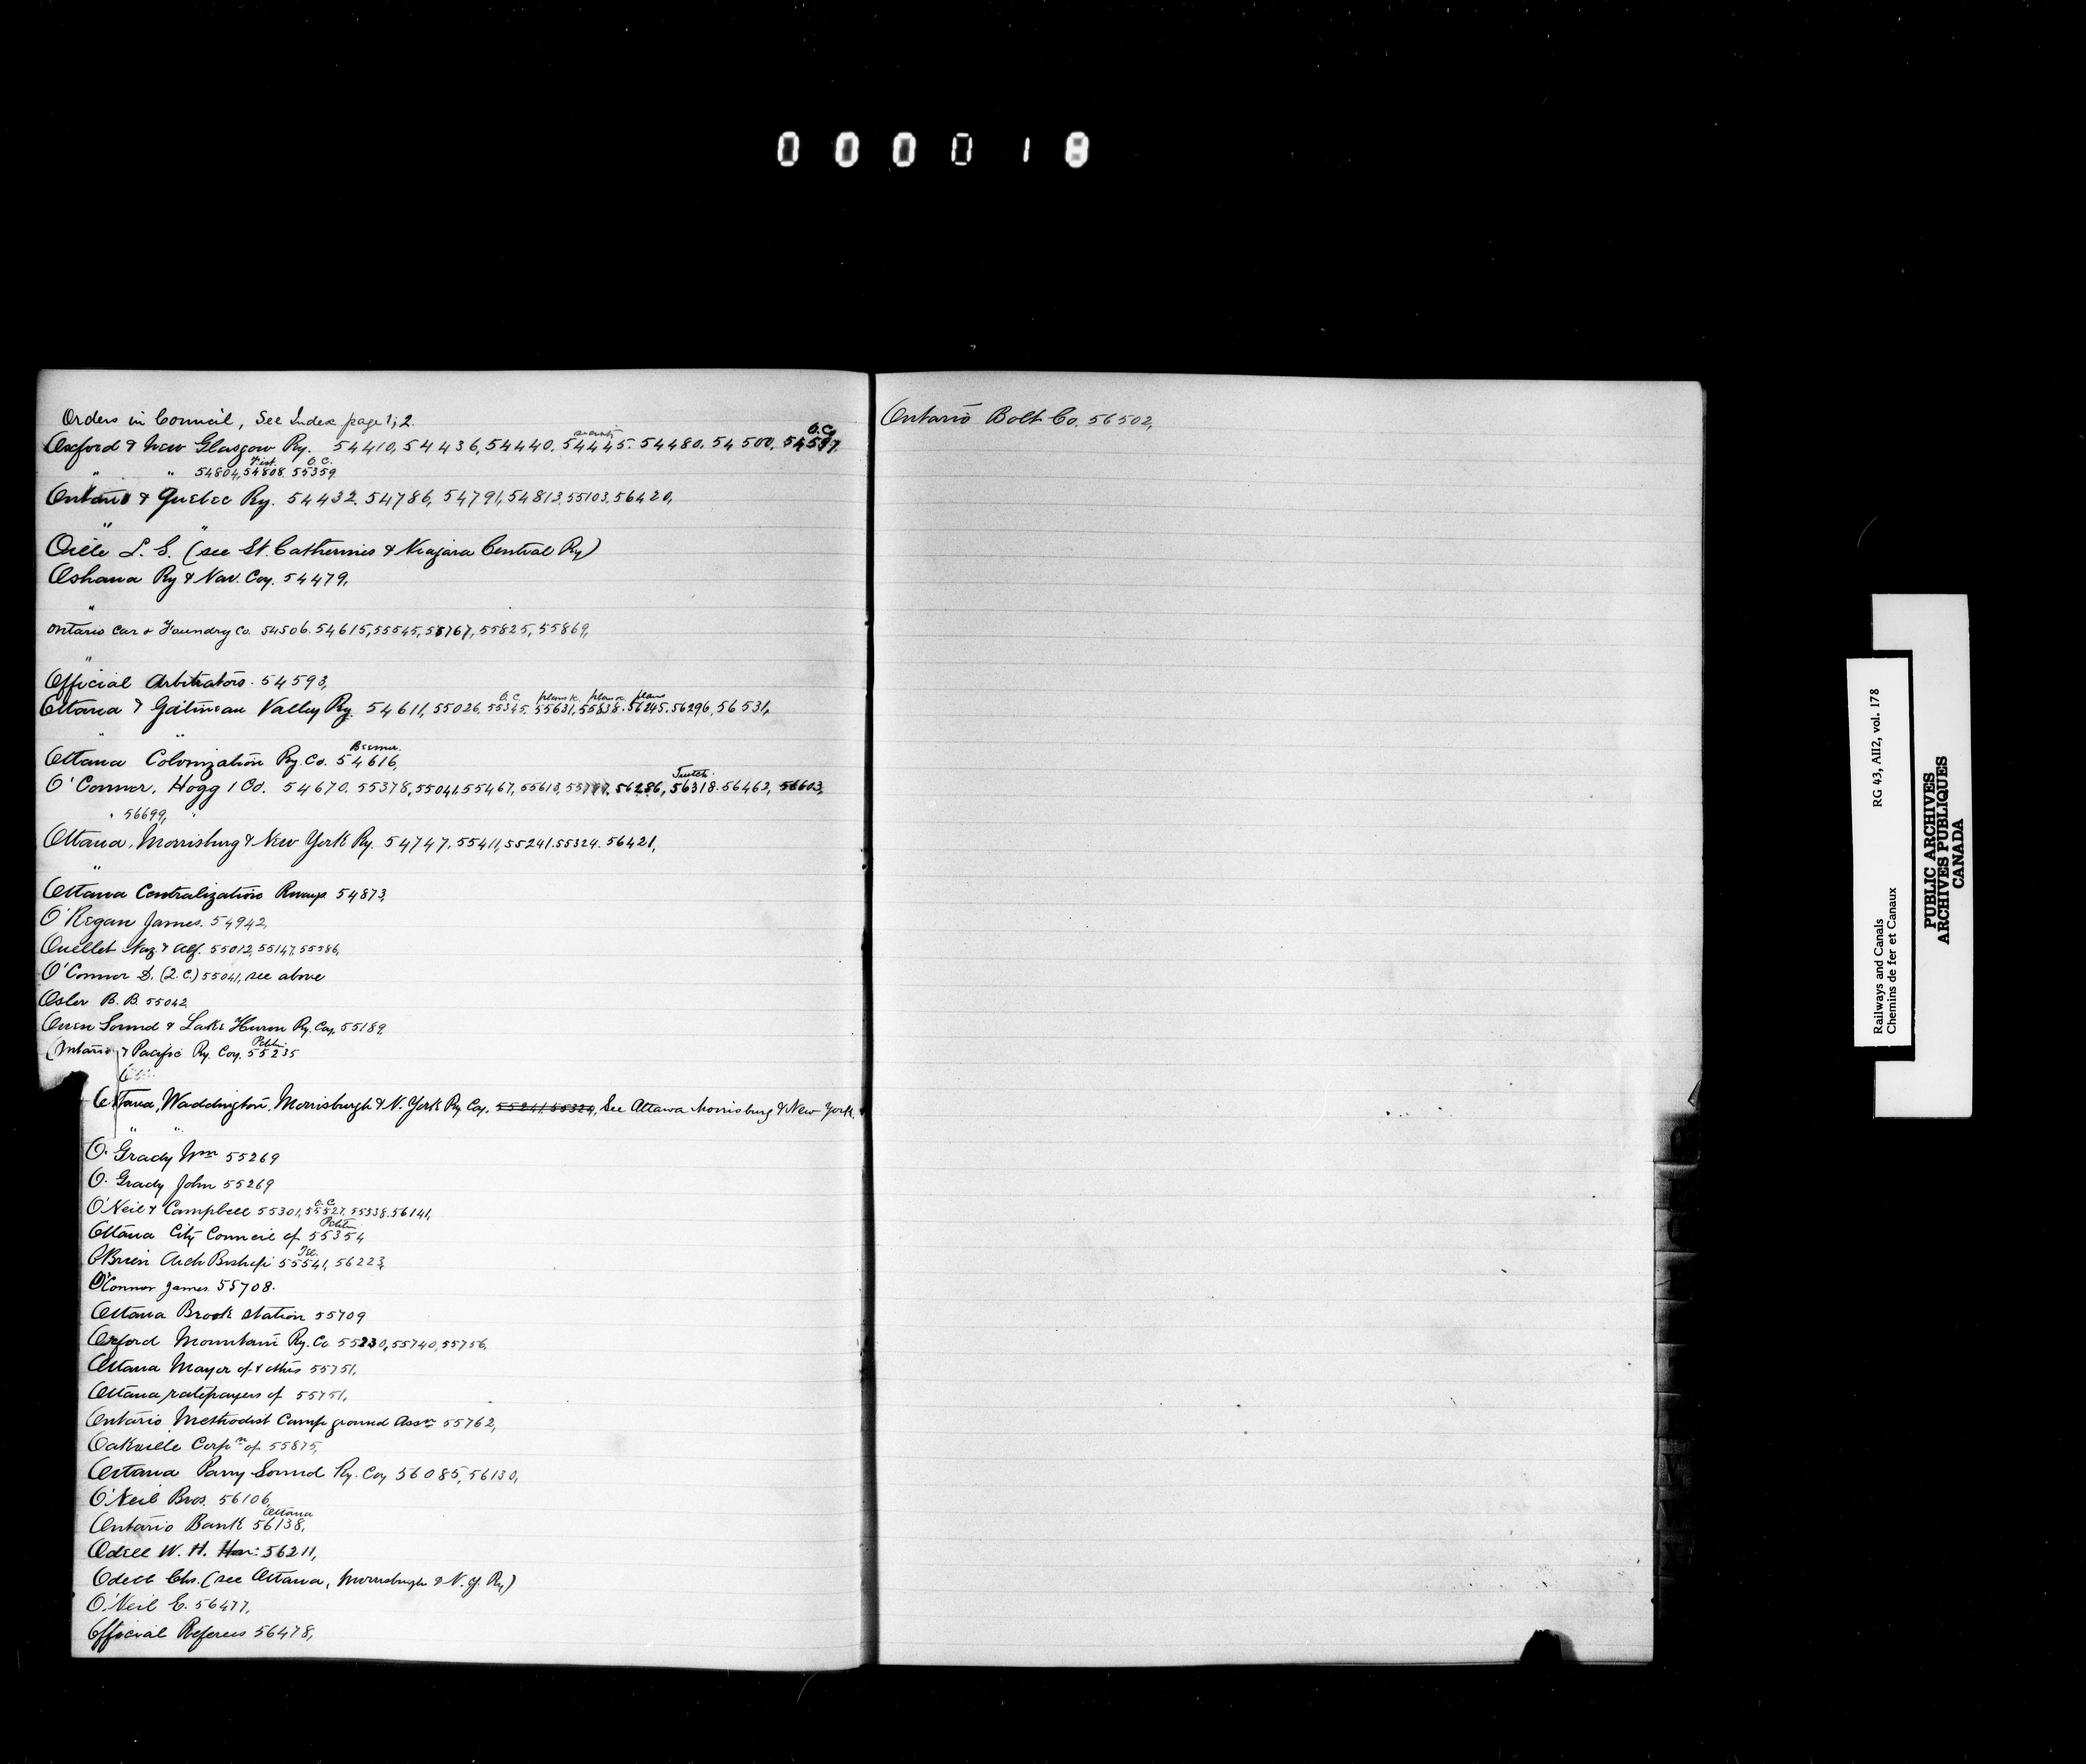 000018
Orders in Council, See Index page 1, 2.
Oxford & New Glasgow Ry. 54410, 54436, 54440, 54445. 54480. 54500, 54597,
O.C.
" " 54804, 54808. 55359
O.C.
Ontario & Quebec Ry. 54432. 54786, 54791, 54813, 55103, 56420,
" "
Oille L. S. (see St. Catherines & Niagara Central Ry)
Oshawa Ry & Nav. Coy. 54479,
"
Ontario Car & Foundry Co. 54506. 54615, 55545, 55767, 55825, 55869,
"
Official Arbitrators. 54593,
Ottawa & Gatineau Valley Ry. 54611, 55026, 55345. 55631, 55838. 56245. 56296, 56531,
O.C. plans plans
" "
Ottawa Colonization Ry. Co. 54616,
O'Connor, Hogg & Co. 54670. 55378, 55041, 55467, 55613, 56286, 56318. 56462, 56603,
" 56699, "
Ottawa, Morrisburg & New York Ry. 54747. 55411, 55241. 55324. 56421,
"
Ottawa Centralization Rways 54873,
O'Regan James. 54942,
Ouellet Naz. & Alf. 55012, 55147, 55386,
O'Connor D. (2. C.) 55041, see above
Osler B. B. 55042,
Owen Sound & Lake Huron Ry. Coy. 55189,
Ontario & Pacific Ry. Coy. 55235
Petitn
Ottawa, Waddington, Morrisburgh & N. York Ry Coy. 55241 55324, See Ottawa Morrisburg & New York.
" "
O'Grady Wm 55269
O'Grady John 55269
O'Neil & Campbell 55301, 55527, 55338. 56141,
O.C.
Ottawa City Council of 55354
Petitn
O'Brien Arch Bishop 55541, 56223,
O'Connor James. 55708.
Ottawa Brook Station 55709
Oxford Mountain Ry. Co 55230, 55740, 55756,
Ottawa Mayor of & others 55751,
Ottawa ratepayers of 55751,
Ontario Methodist Camp ground Assn 55762,
Oakville Corpn of 55875,
Ottawa Parry Sound Ry. Coy 56085, 56130,
O'Neil Bros. 56106,
Ottawa
Ontario Bank 56138,
Odell W. H. Hon: 56211,
Odell Chs. (see Ottawa, Morrisburgh & N. Y. Ry)
O'Neil E. 56477,
Official Referees 56478,
Ontario Bolt Co. 56502,
Railways and Canals RG 43, AII2, vol. 178
Chemins de fer et Canaux
PUBLIC ARCHIVES
ARCHIVES PUBLIQUES
CANADA